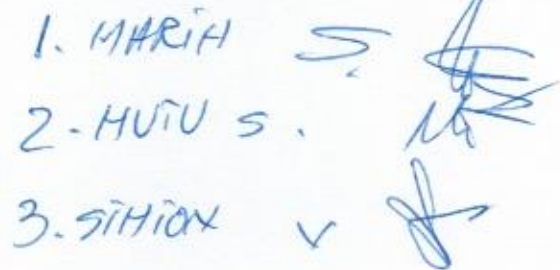 1. MARiH S.
2. HUiU S.
3. SiHiON V